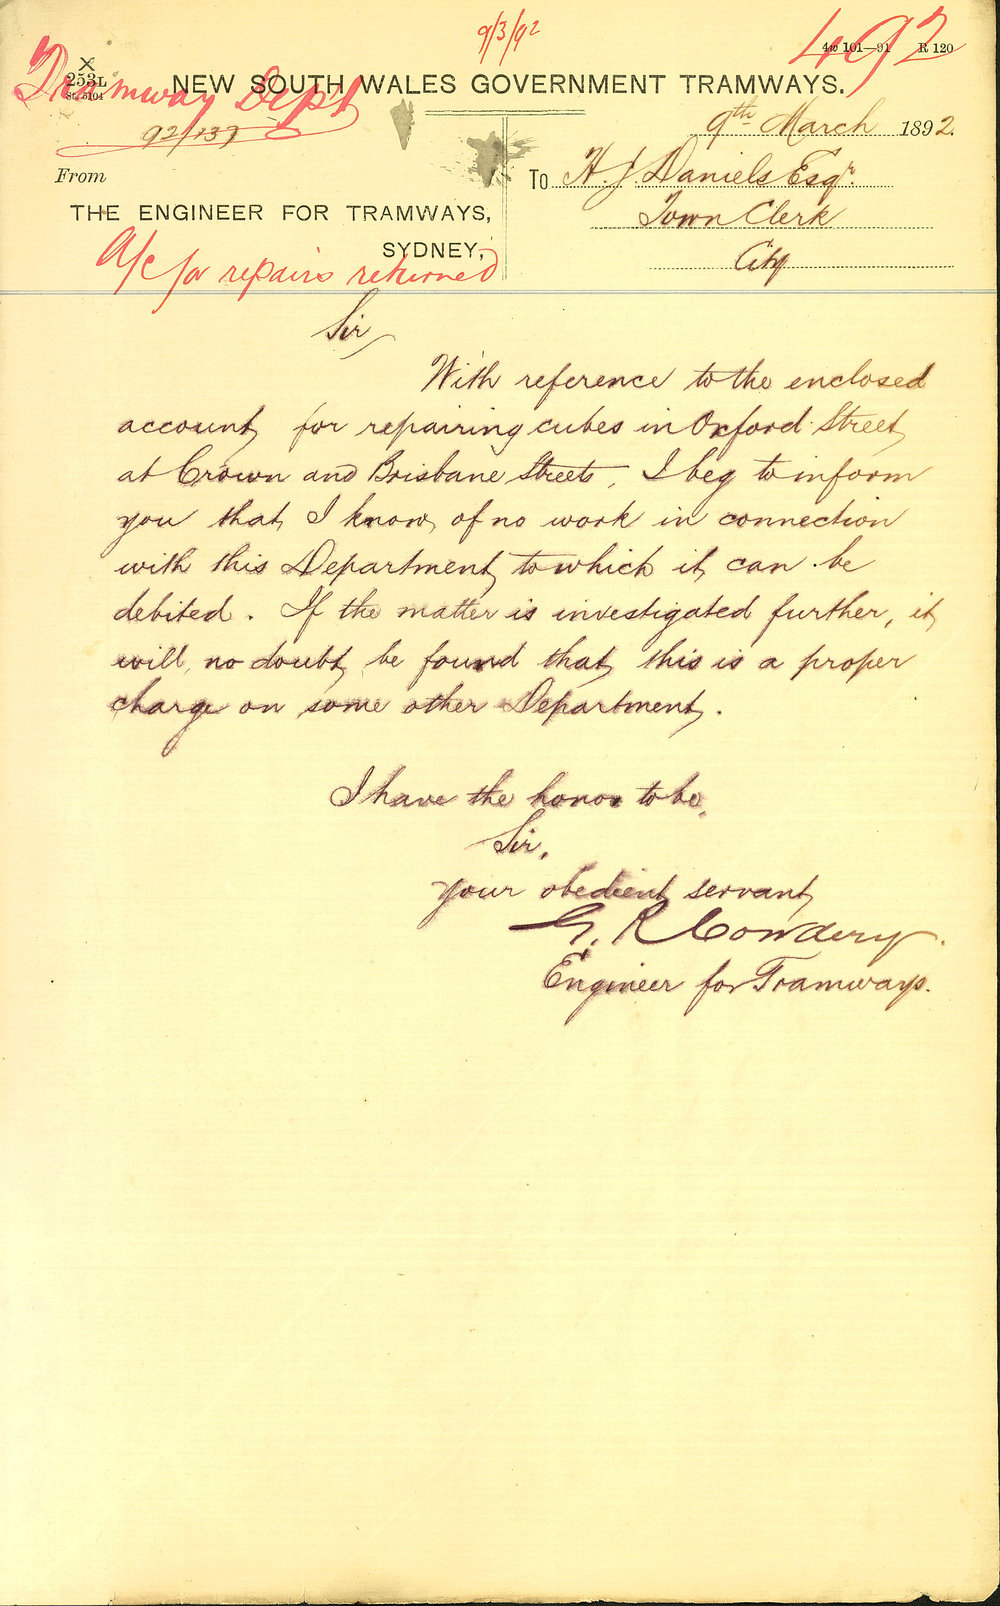 9/3/92
492
4to 101—91 R 120
X
253L
St. 5104
Tramway Dept
NEW SOUTH WALES GOVERNMENT TRAMWAYS.
92/139
9th March 1892.
From
To H. J. Daniels Esqr.
THE ENGINEER FOR TRAMWAYS,
Town Clerk
SYDNEY,
City
A/c for repairs returned
Sir
With reference to the enclosed
account for repairing cubes in Oxford Street
at Crown and Brisbane Streets, I beg to inform
you that I know of no work in connection
with this Department to which it can be
debited. If the matter is investigated further, it
will, no doubt, be found that this is a proper
charge on some other Department.
I have the honor to be,
Sir,
Your obedient servant
G. R. Cowdery.
Engineer for Tramways.